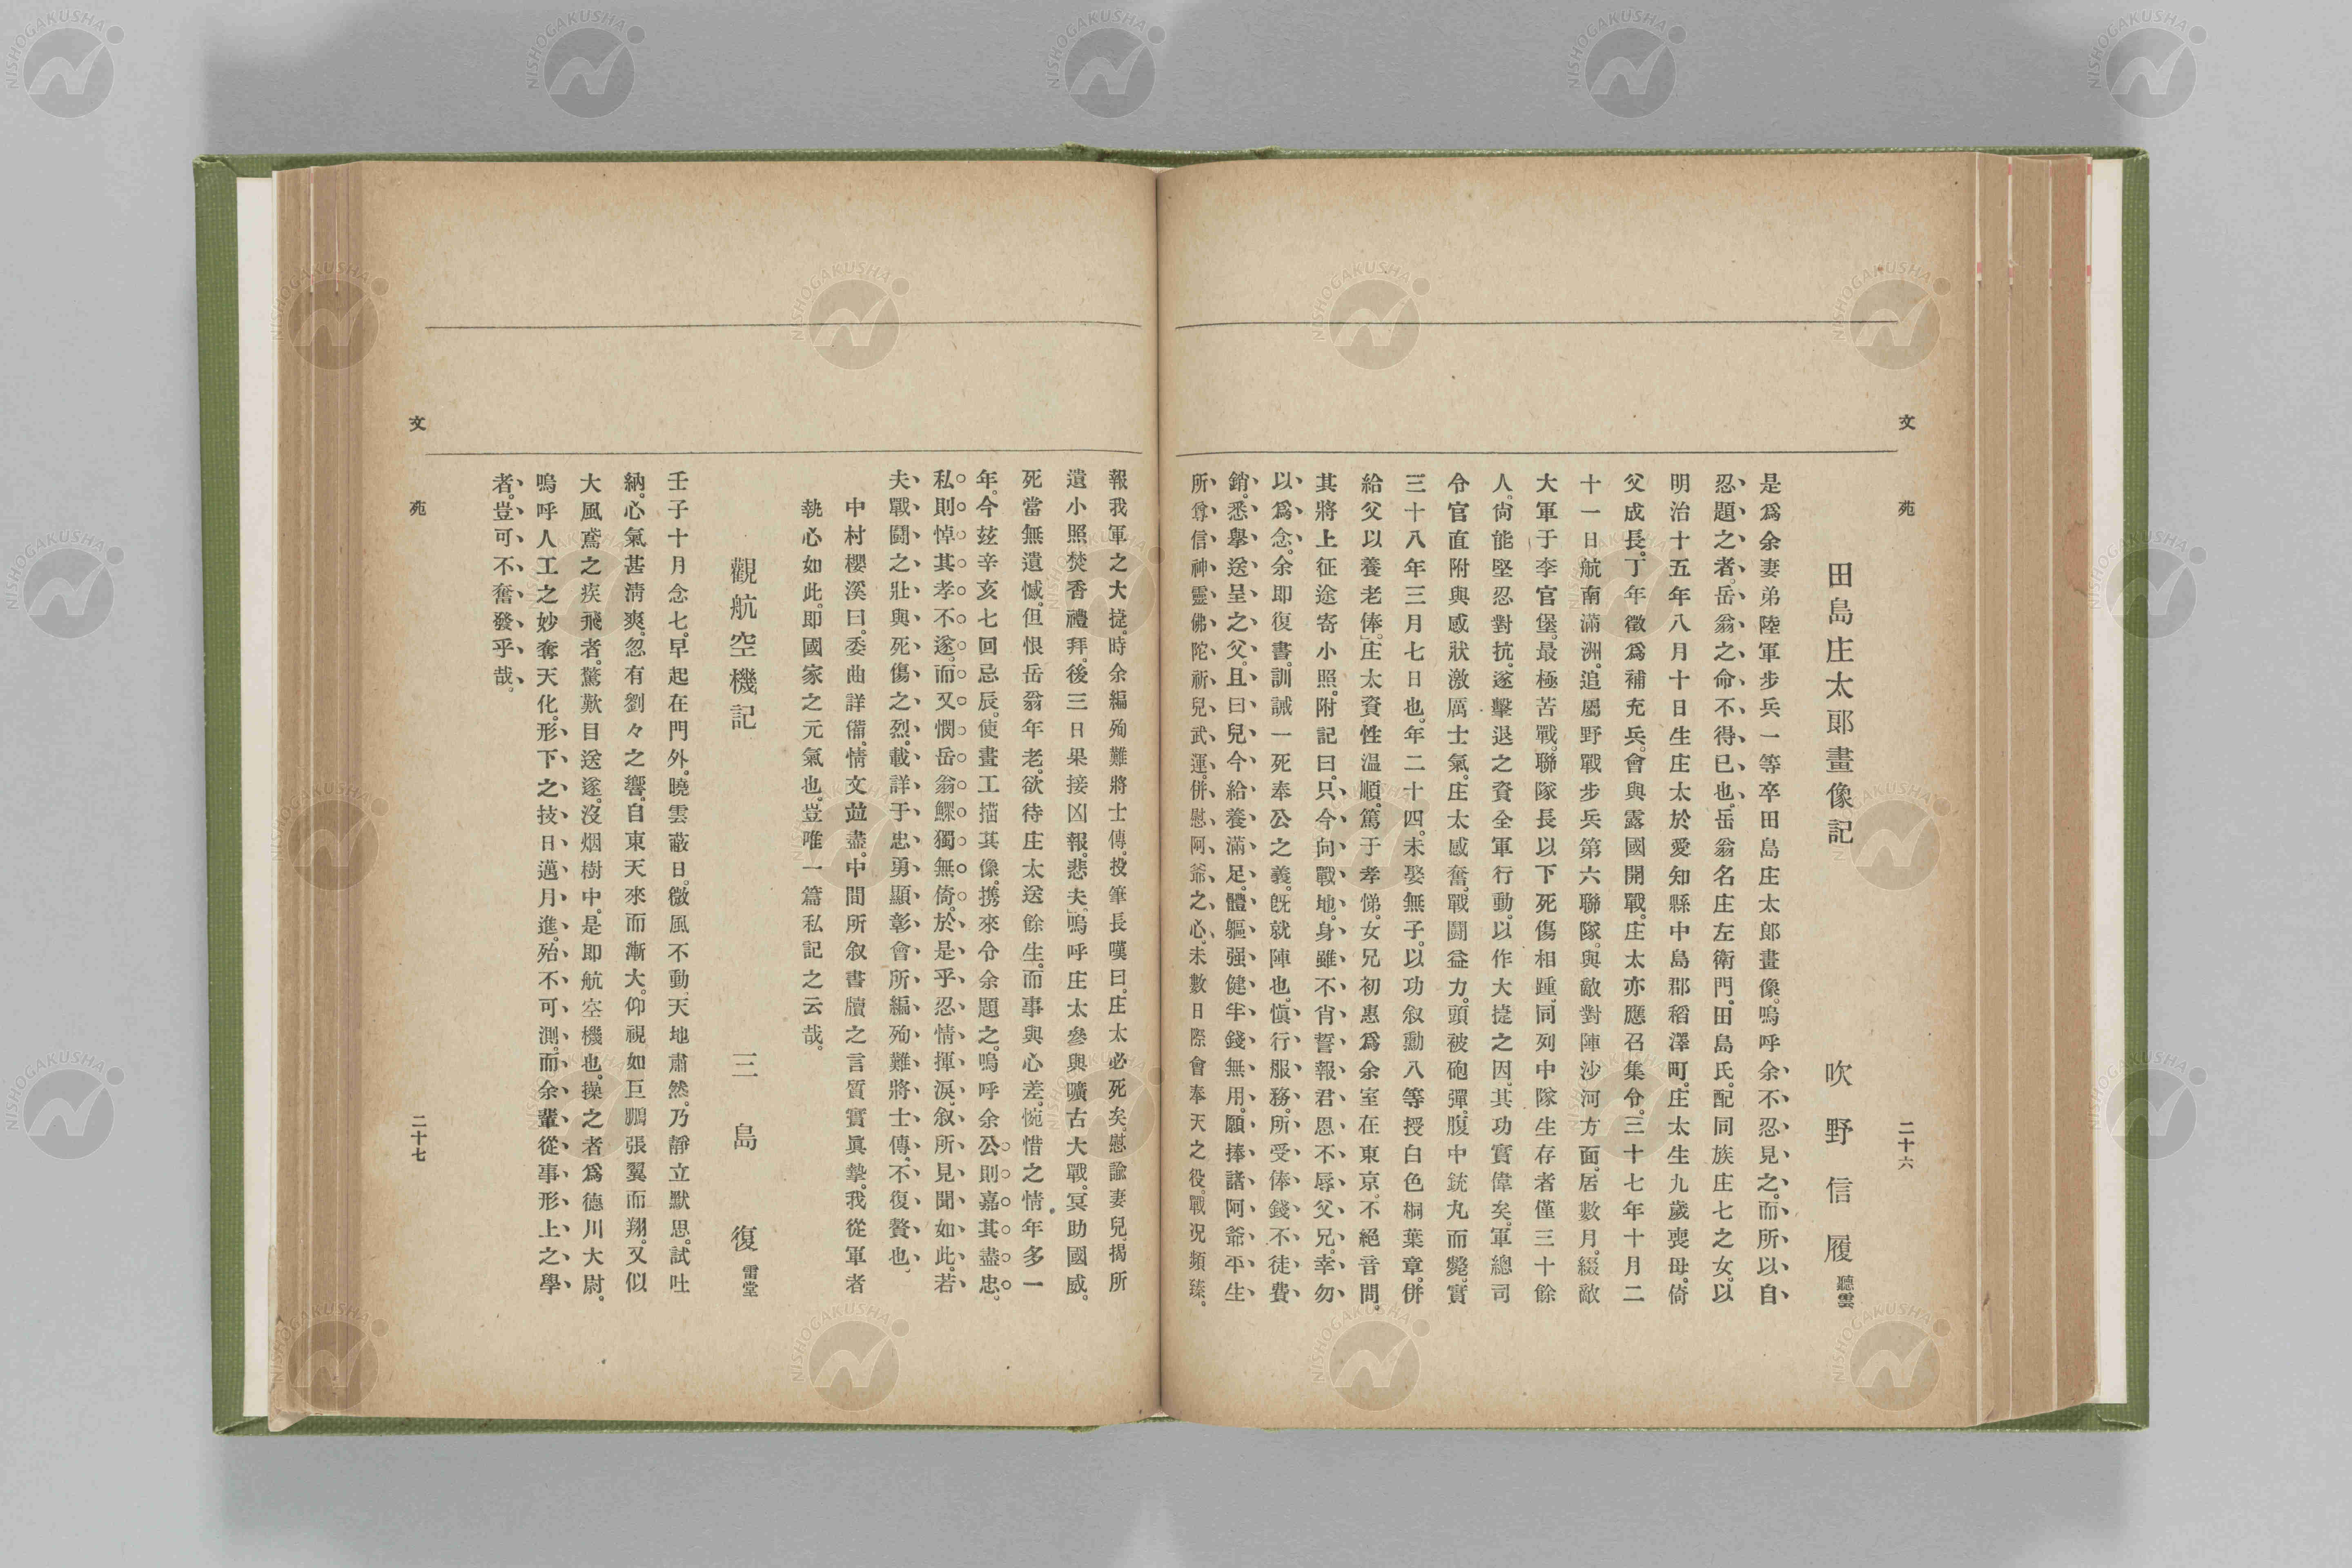 文苑
二十六
田島庄太郎畫像記　吹野信履 聽雲
是爲余妻弟陸軍步兵一等卒田島庄太郎畫像。嗚呼余不忍見之。而所以自
忍題之者。岳翁之命不得已也。岳翁名庄左衛門。田島氏。配同族庄七之女。以
明治十五年八月十日生庄太於愛知縣中島郡稻澤町。庄太生九歲喪母。倚
父成長。丁年徵爲補充兵。會與露國開戰。庄太亦應召集令。三十七年十月二
十一日航南滿洲。追屬野戰步兵第六聯隊。與敵對陣沙河方面。居數月。綴敵
大軍于李官堡。最極苦戰。聯隊長以下死傷相踵。同列中隊生存者僅三十餘
人。尙能堅忍對抗。遂擊退之資全軍行動。以作大捷之因。其功實偉矣。軍總司
令官直附與感狀激厲士氣。庄太感奮。戰鬪益力。頭被砲彈。腹中銃丸而斃。實
三十八年三月七日也。年二十四。未娶無子。以功叙勳八等授白色桐葉章。併
給父以養老俸。」庄太資性温順。篤于孝悌。女兄初惠爲余室在東京。不絕音問。
其將上征途寄小照。附記曰。只今向戰地。身雖不肖誓報君恩不辱父兄。幸勿
以爲念。余即復書。訓誡一死奉公之義。旣就陣也。愼行服務。所受俸錢不徒費
銷。悉擧送呈之父。且曰。兒今給養滿足。體軀强健。半錢無用。願捧諸阿爺平生
所尊信神靈佛陀祈兒武運。併慰阿爺之心。未數日際會奉天之役。戰況頻臻。
報我軍之大捷。時余編殉難將士傳。投筆長嘆曰。庄太必死矣。慰諭妻兒。揭所
遺小照焚香禮拜。後三日果接凶報。悲夫。」嗚呼庄太參與曠古大戰。冥助國威。
死當無遺憾。但恨岳翁年老。欲待庄太送餘生。而事與心差。惋惜之情年多一
年。今玆辛亥七回忌辰。使畫工描其像。携來令余題之。嗚呼余公則嘉其盡忠。
私則悼其孝不遂。而又憫岳翁鰥獨無倚。於是乎忍情揮淚。叙所見聞如此。若
夫戰鬪之壯與死傷之烈。載詳于忠勇顯彰會所編殉難將士傳。不復贅也。
中村櫻溪曰。委曲詳備。情文竝盡。中間所叙書牘之言質實眞摯。我從軍者
執心如此。即國家之元氣也。豈唯一篇私記之云哉。
觀航空機記　三島復 雷堂
壬子十月念七。早起在門外。曉雲蔽日。微風不動。天地肅然。乃靜立默思。試吐
納。心氣甚淸爽。忽有劉々之響。自東天來而漸大。仰視如巨鵬張翼而翔。又似
大風鳶之疾飛者。驚歎目送遂。沒烟樹中。是即航空機也。操之者爲德川大尉。
嗚呼人工之妙奪天化。形下之技日邁月進。殆不可測。而余輩從事形上之學
者。豈可不奮發乎哉。
文苑
二十七
NISHOGAKUSHA